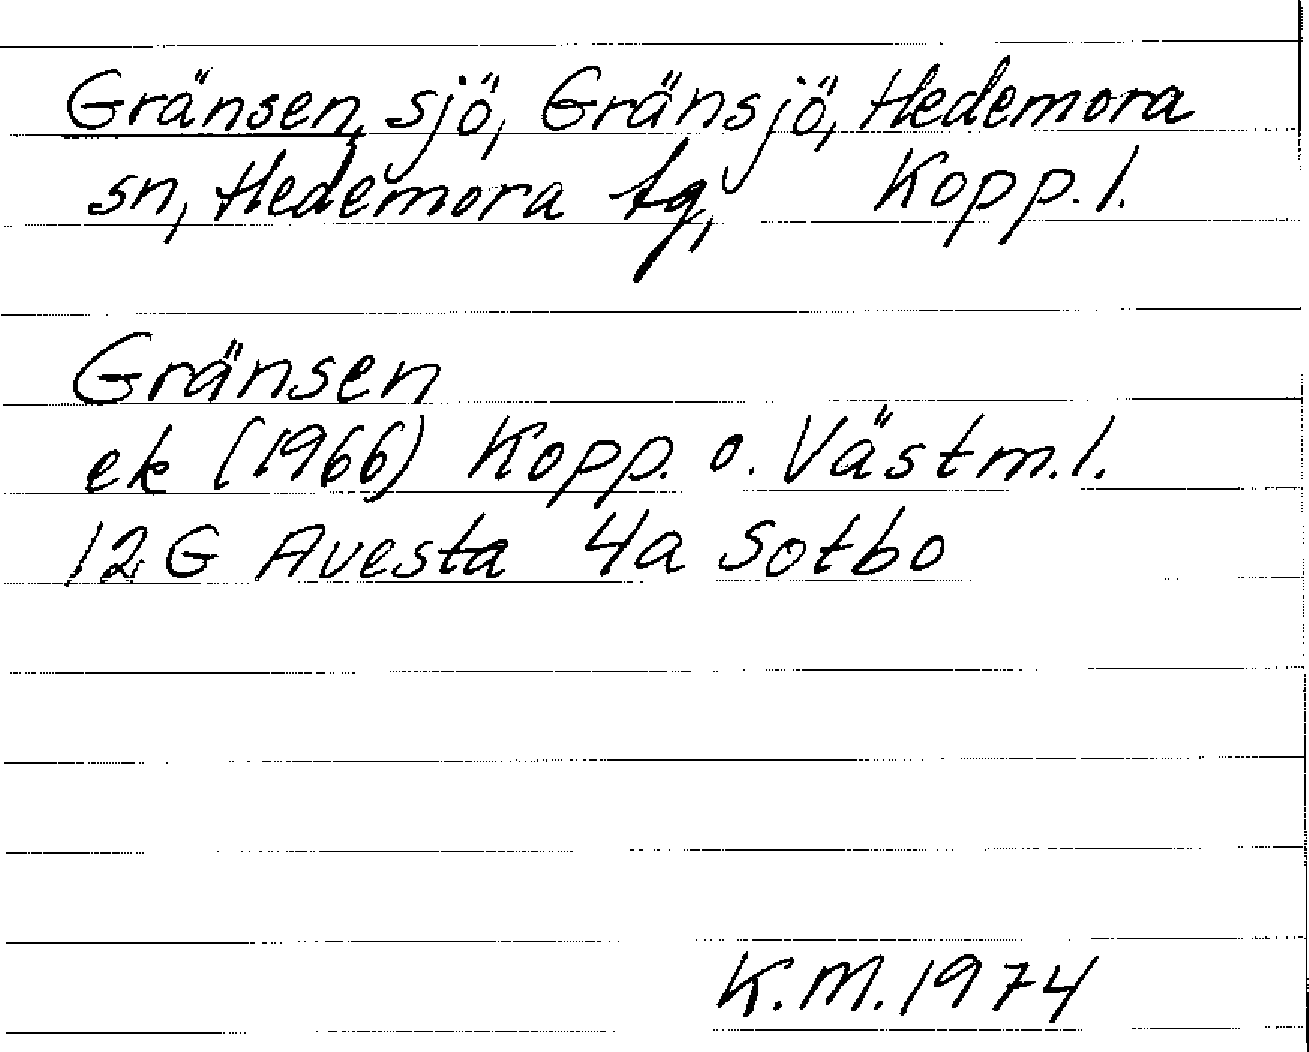 Gränsen, sjö, Gränsjö, Hedemora
sn, Hedemora tg, Kopp. l.
Gränsen
ek (1966) Kopp. o. Västm. l.
12 G Avesta 4a Sotbo
K.M. 1974